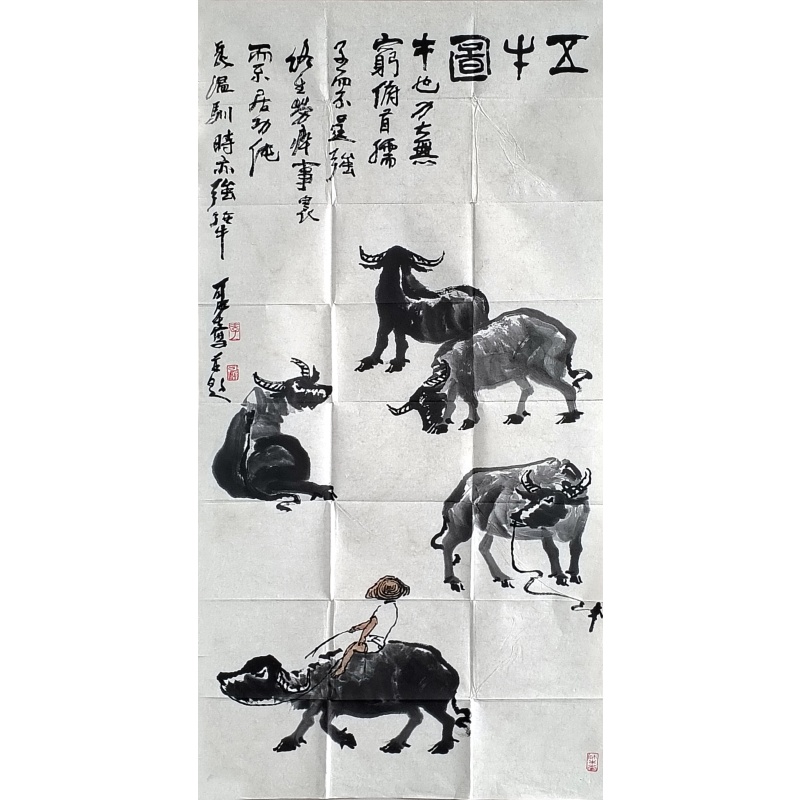 五牛圖
牛也力大無
窮俯首孺
子而不逞強
終生勞瘁事農
而不居功純
良溫馴時亦強犟
可染 題